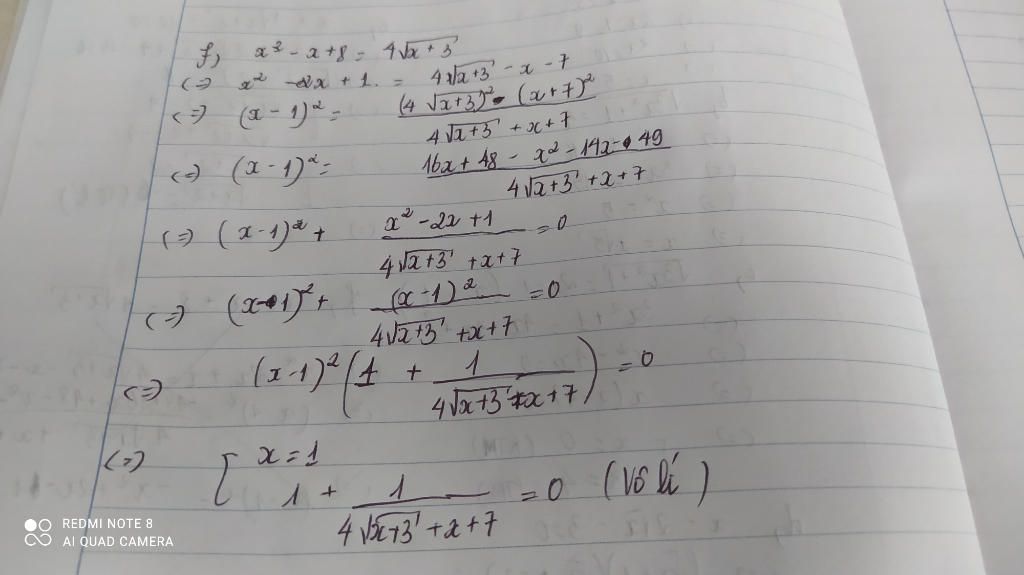 f) x² - x + 8 = 4√x+3
(=) x² - 2x + 1 = 4√x+3 - x - 7
(=) (x - 1)² = (4√x+3)² - (x+7)² / 4√x+3 + x + 7
(=) (x - 1)² = 16x + 48 - x² - 14x - 49 / 4√x+3 + x + 7
(=) (x - 1)² + x² - 2x + 1 / 4√x+3 + x + 7 = 0
(=) (x - 1)² + (x - 1)² / 4√x+3 + x + 7 = 0
(=) (x - 1)² (1 + 1 / 4√x+3 + x + 7) = 0
(=) [ x = 1
1 + 1 / 4√x+3 + x + 7 = 0 (Vô lí)
REDMI NOTE 8
AI QUAD CAMERA